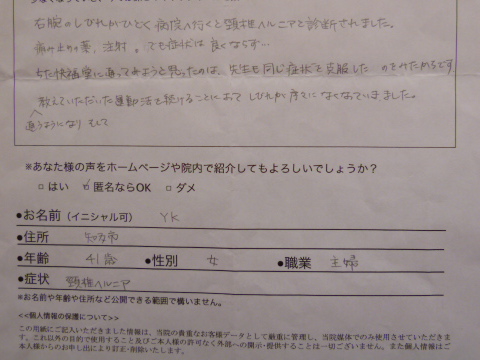 右腕のしびれがひどく病院へ行くと頸椎ヘルニアと診断されました。
痛み止めの薬、注射、しても症状は良くならず…
ちた快福堂に通ってみようと思ったのは、先生も同じ症状を克服した のをみたからです
教えていただいた運動法を続けることによって しびれが序々に なくなっていきました。
通うようになり そして
※あなた様の声をホームページや院内で紹介してもよろしいでしょうか?
□はい ☑匿名ならOK □ダメ
●お名前(イニシャル可) YK
●住所 知多市
●年齢 41歳 ●性別 女 ●職業 主婦
●症状 頸椎ヘルニア
※お名前や年齢や住所など公開できる範囲で構いません。
<<個人情報の保護について>>
この用紙にご記入いただきました情報は、当院の貴重なお客様データとして厳重に管理し、当院媒体でのみ使用させていただきま
す。これ以外の目的で使用すること及びご本人様の許可なく外部への開示・提供することは一切ございません。また個人情報はご
本人様からのお申し出により訂正・削除いたします。